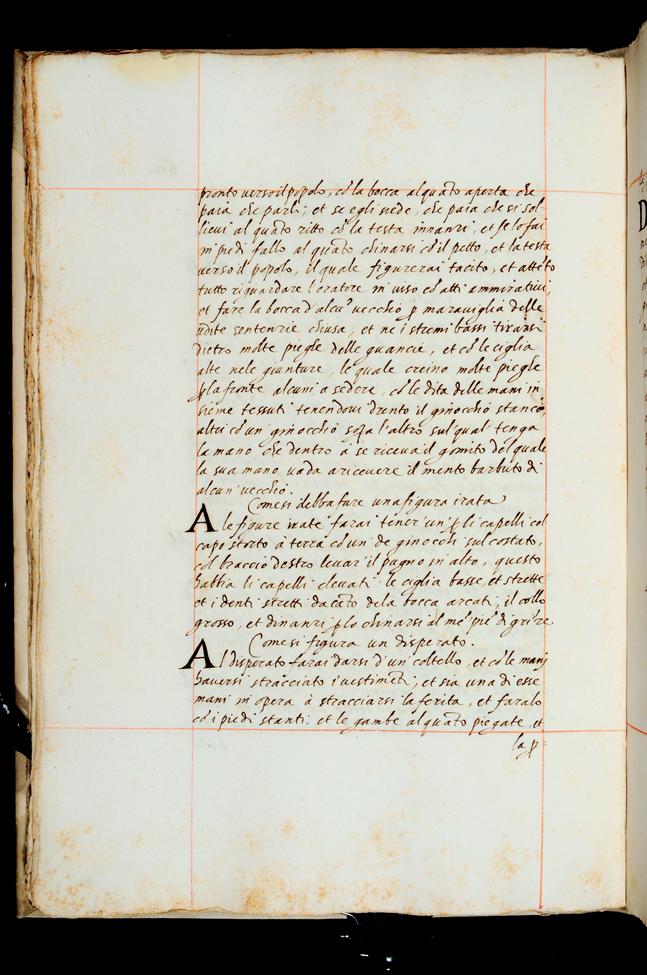 pronto verso il popolo, cõ la bocca alquãto aperta che
paia che parli; et se egli siede, che paia che si sol-
lieui al quãto ritto cõ la testa innanzi, et se lo fai
in piedi fallo al quãto chinarsi cõ il petto, et la testa
verso il popolo, il quale figurerai tacito, et attẽto
tutto riguardare l'oratore in uiso cõ atti ammiratiui,
et fare la bocca d'alcũ uecchio ꝑ marauiglia delle
udite sentenzie chiusa, et ne i stremi bassi tirarsi
dietro molte pieghe delle guancie, et cõ le ciglia
alte nele giunture, le quale creino molte pieghe
ꝑ la fronte alcuni a sedere, cõ le dita delle mani in
sieme tessuti tenendoui drento il ginocchio stanco,
altri cõ un ginocchio sopa l'altro sul qual tenga
la mano che dentro à se riceua il gomito del quale
la sua mano uada a riceuere il mento barbuto di
alcun uecchio.
Come si debba fare una figura irata
A le figure irate farai tener un ꝑ li capelli col
capo storto à terra cõ un de ginocchi sul costato,
col braccio destro leuar il pugno in alto, questo
habbia li capelli eleuati le ciglia basse, et strette
et i denti stretti da cãto dela bocca arcati, il collo
grosso, et dinanzi ꝑ lo chinarsi al
Come si figura un disperato.
Al disperato farai darsi d'un coltello, et cõ le mani
hauersi stracciato i uestimẽti; et sia una di esse
mani in opera à stracciarsi la ferita, et faralo
cõ i piedi stanti; et le gambe alquãto piegate, et
la ꝑ=